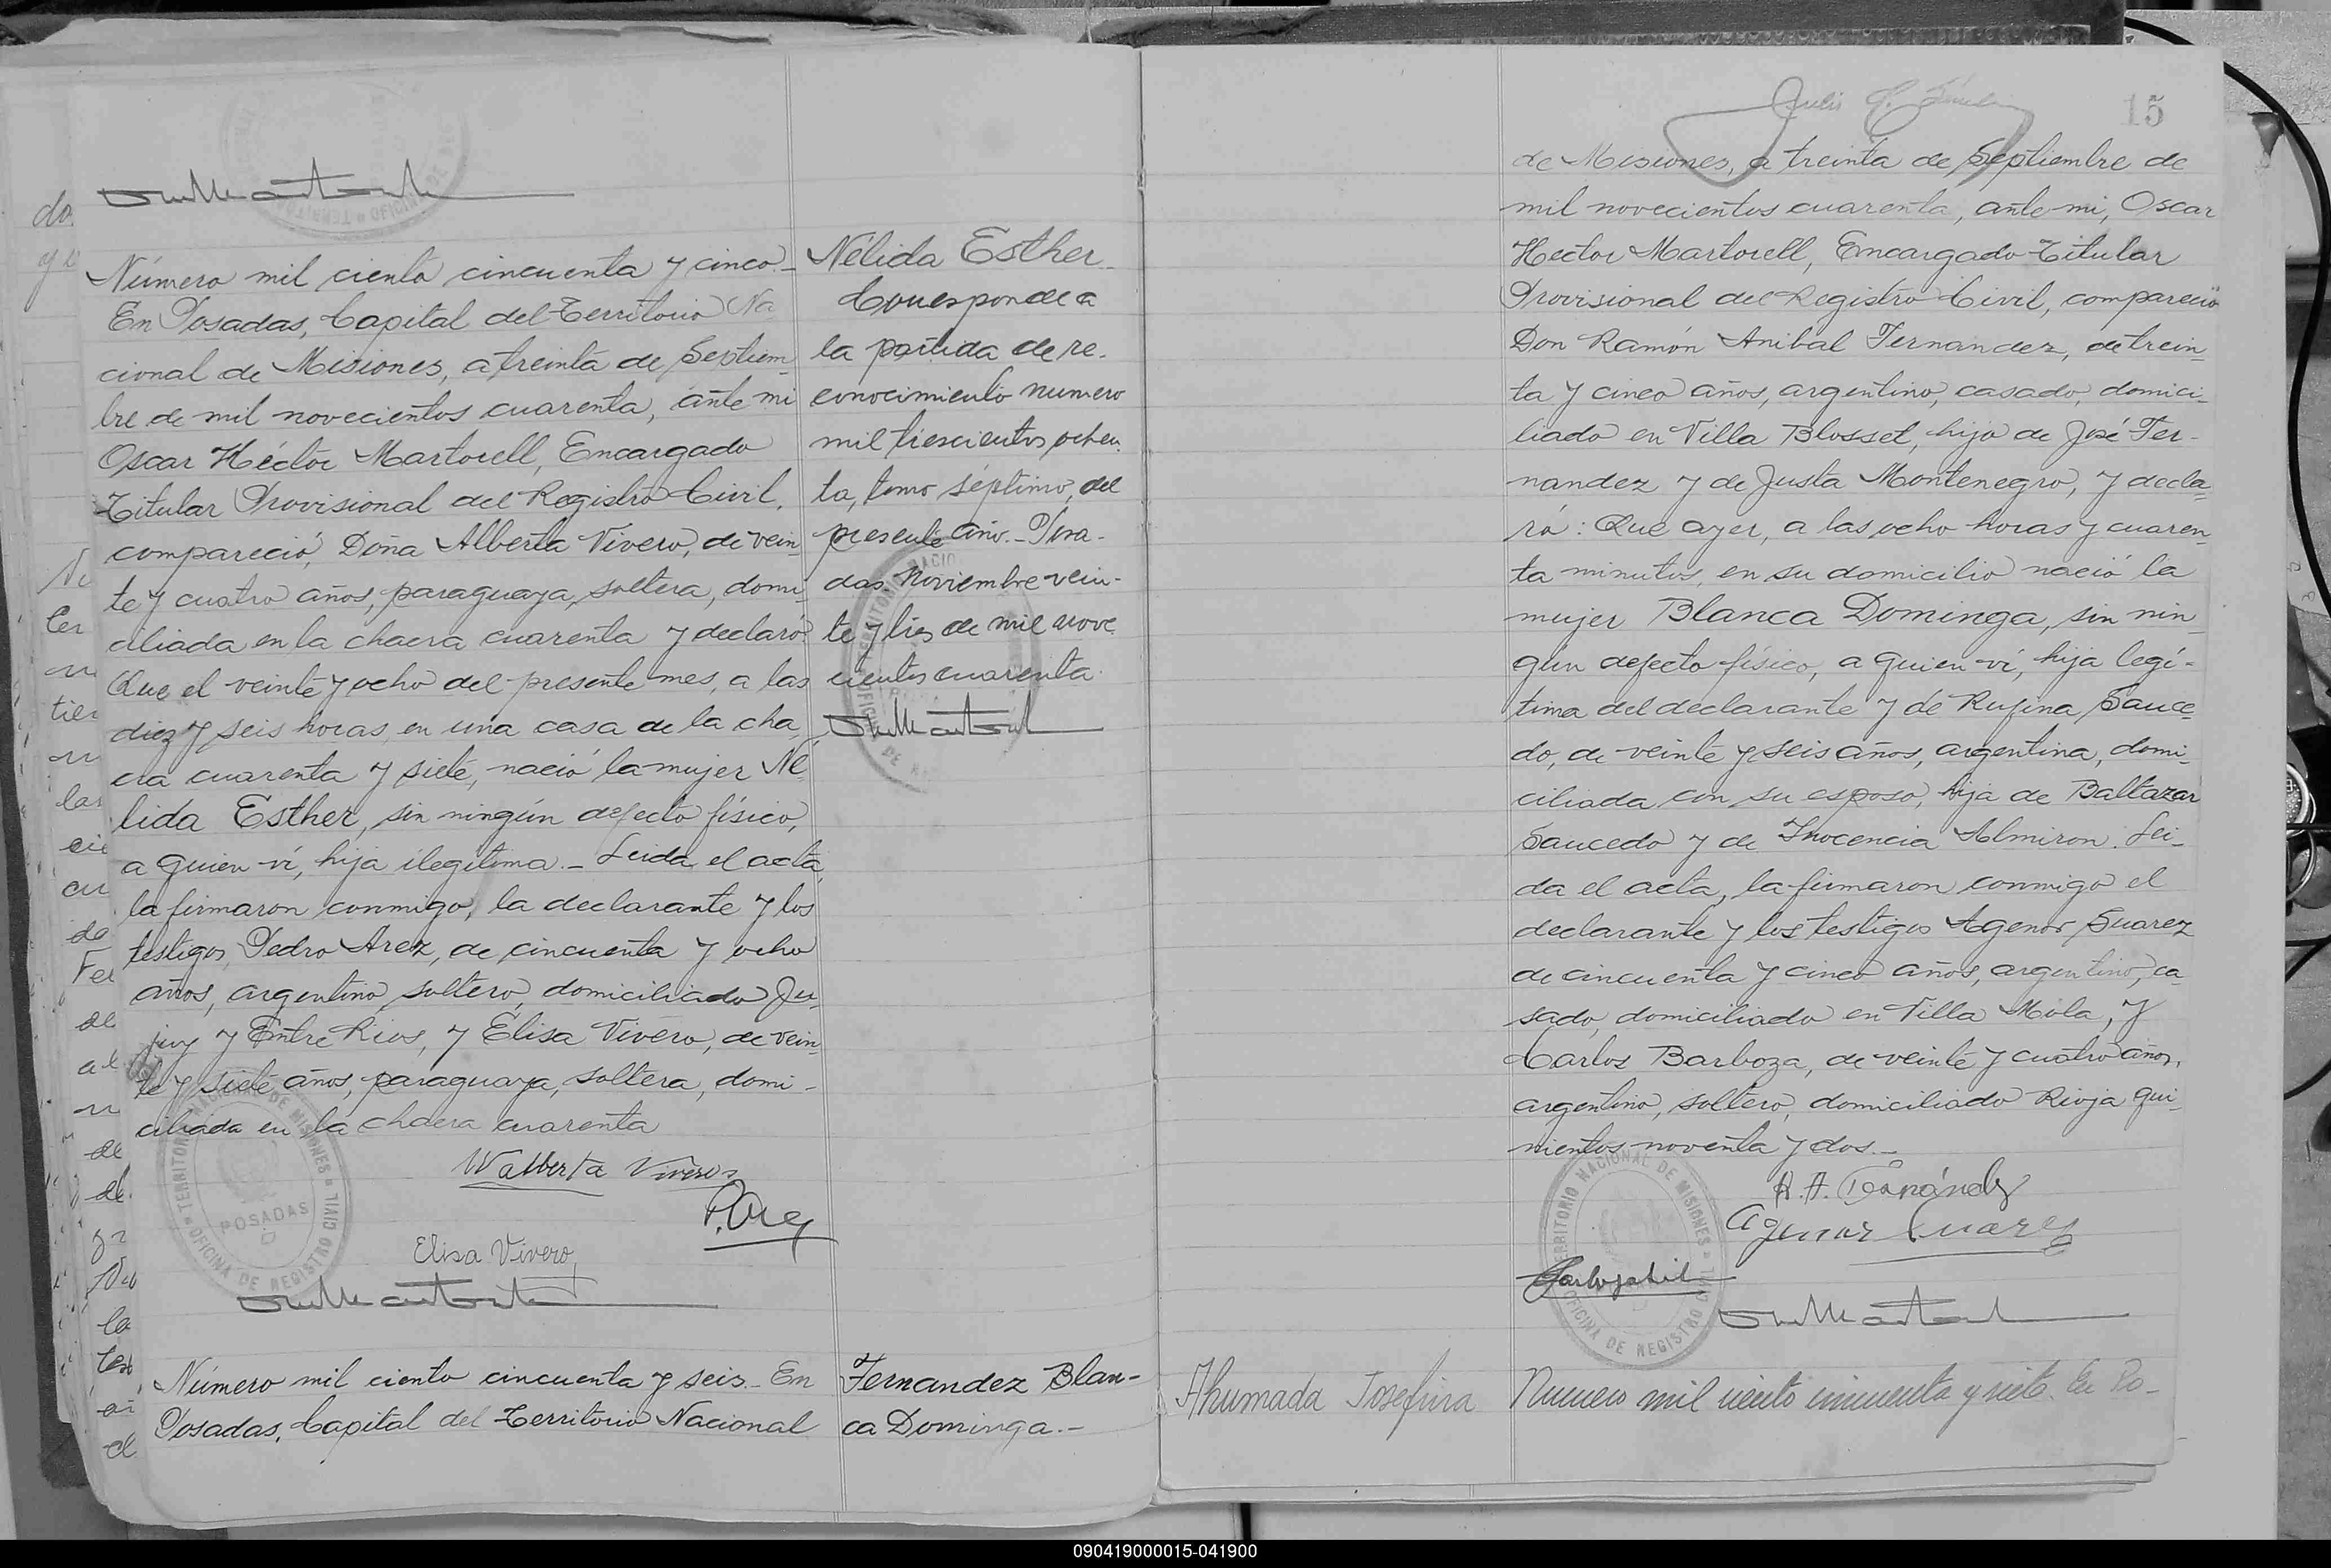 Número mil ciento cincuenta y cinco_
En Posadas, Capital del Territorio Na
cional de Misiones, a treinta de Septiem
bre de mil novecientos cuarenta, ante mi
Oscar Héctor Martorell, Encargado
Titular Provisional del Registro Civil,
compareció, Doña Alberta Vivero, de vein
te y cuatro años, paraguaya, soltera, domi
ciliada en la chacra cuarenta y declaró:
Que el veinte y ocho del presente mes, a las
diez y seis horas, en una casa de la cha
cra cuarenta y siete, nació la mujer Né
lida Esther, sin ningún defecto físico,
a quien ví, hija ilegítima._ Leida el acta,
la firmaron conmigo, la declarante y los
testigos, Pedro Arez, de cincuenta y ocho
años, argentino, soltero, domiciliado Ju-
juy y Entre Rios, y Elisa Vivero, de vein
te y siete años, paraguaya, soltera, domi-
ciliada en la chacra cuarenta
Walberta Vivero
P. Arez
Elisa Vivero
TERRITORIO NACIONAL DE MISIONES
POSADAS
OFICINA DE REGISTRO CIVIL
Nélida Esther_
Corresponde a
la partida de re-
conocimiento numero
mil trescientos ochen
ta, tomo séptimo, del
presente año._ Posa-
das, Noviembre vein-
te y tres de mil nove
cientos cuarenta.
Número mil ciento cincuenta y seis_ En
Posadas, Capital del Territorio Nacional
Fernandez Blan-
ca Dominga.-
15
de Misiones, a treinta de Septiembre de
mil novecientos cuarenta, ante mi, Oscar
Hector Martorell, Encargado Titular
Provisional del Registro Civil, compareció
Don Ramón Anibal Fernandez, de trein
ta y cinco años, argentino, casado, domici_
liado en Villa Blosset, hijo de José Fer-
nandez y de Justa Montenegro, y decla_
ró: Que ayer, a las ocho horas y cuaren_
ta minutos, en su domicilio nació la
mujer Blanca Dominga, sin nin_
gún defecto físico, a quien ví, hija legí-
tima del declarante y de Rufina Sauce_
do, de veinte y seis años, argentina, domi_
ciliada con su esposo, hija de Baltazar
Saucedo y de Inocencia Almiron. Lei_
da el acta, la firmaron conmigo el
declarante y los testigos Agenor Suarez
de cincuenta y cinco años, argentino, ca
sado, domiciliado en Villa Mola, y
Carlos Barboza, de veinte y cuatro años,
argentino, soltero, domiciliado Rioja qui_
nientos noventa y dos._
R. A. Fernández
Agenor Suarez
TERRITORIO NACIONAL DE MISIONES
OFICINA DE REGISTRO CIVIL
Ahumada Josefina
Numero mil ciento cincuenta y siete. En Po-
090419000015-041900